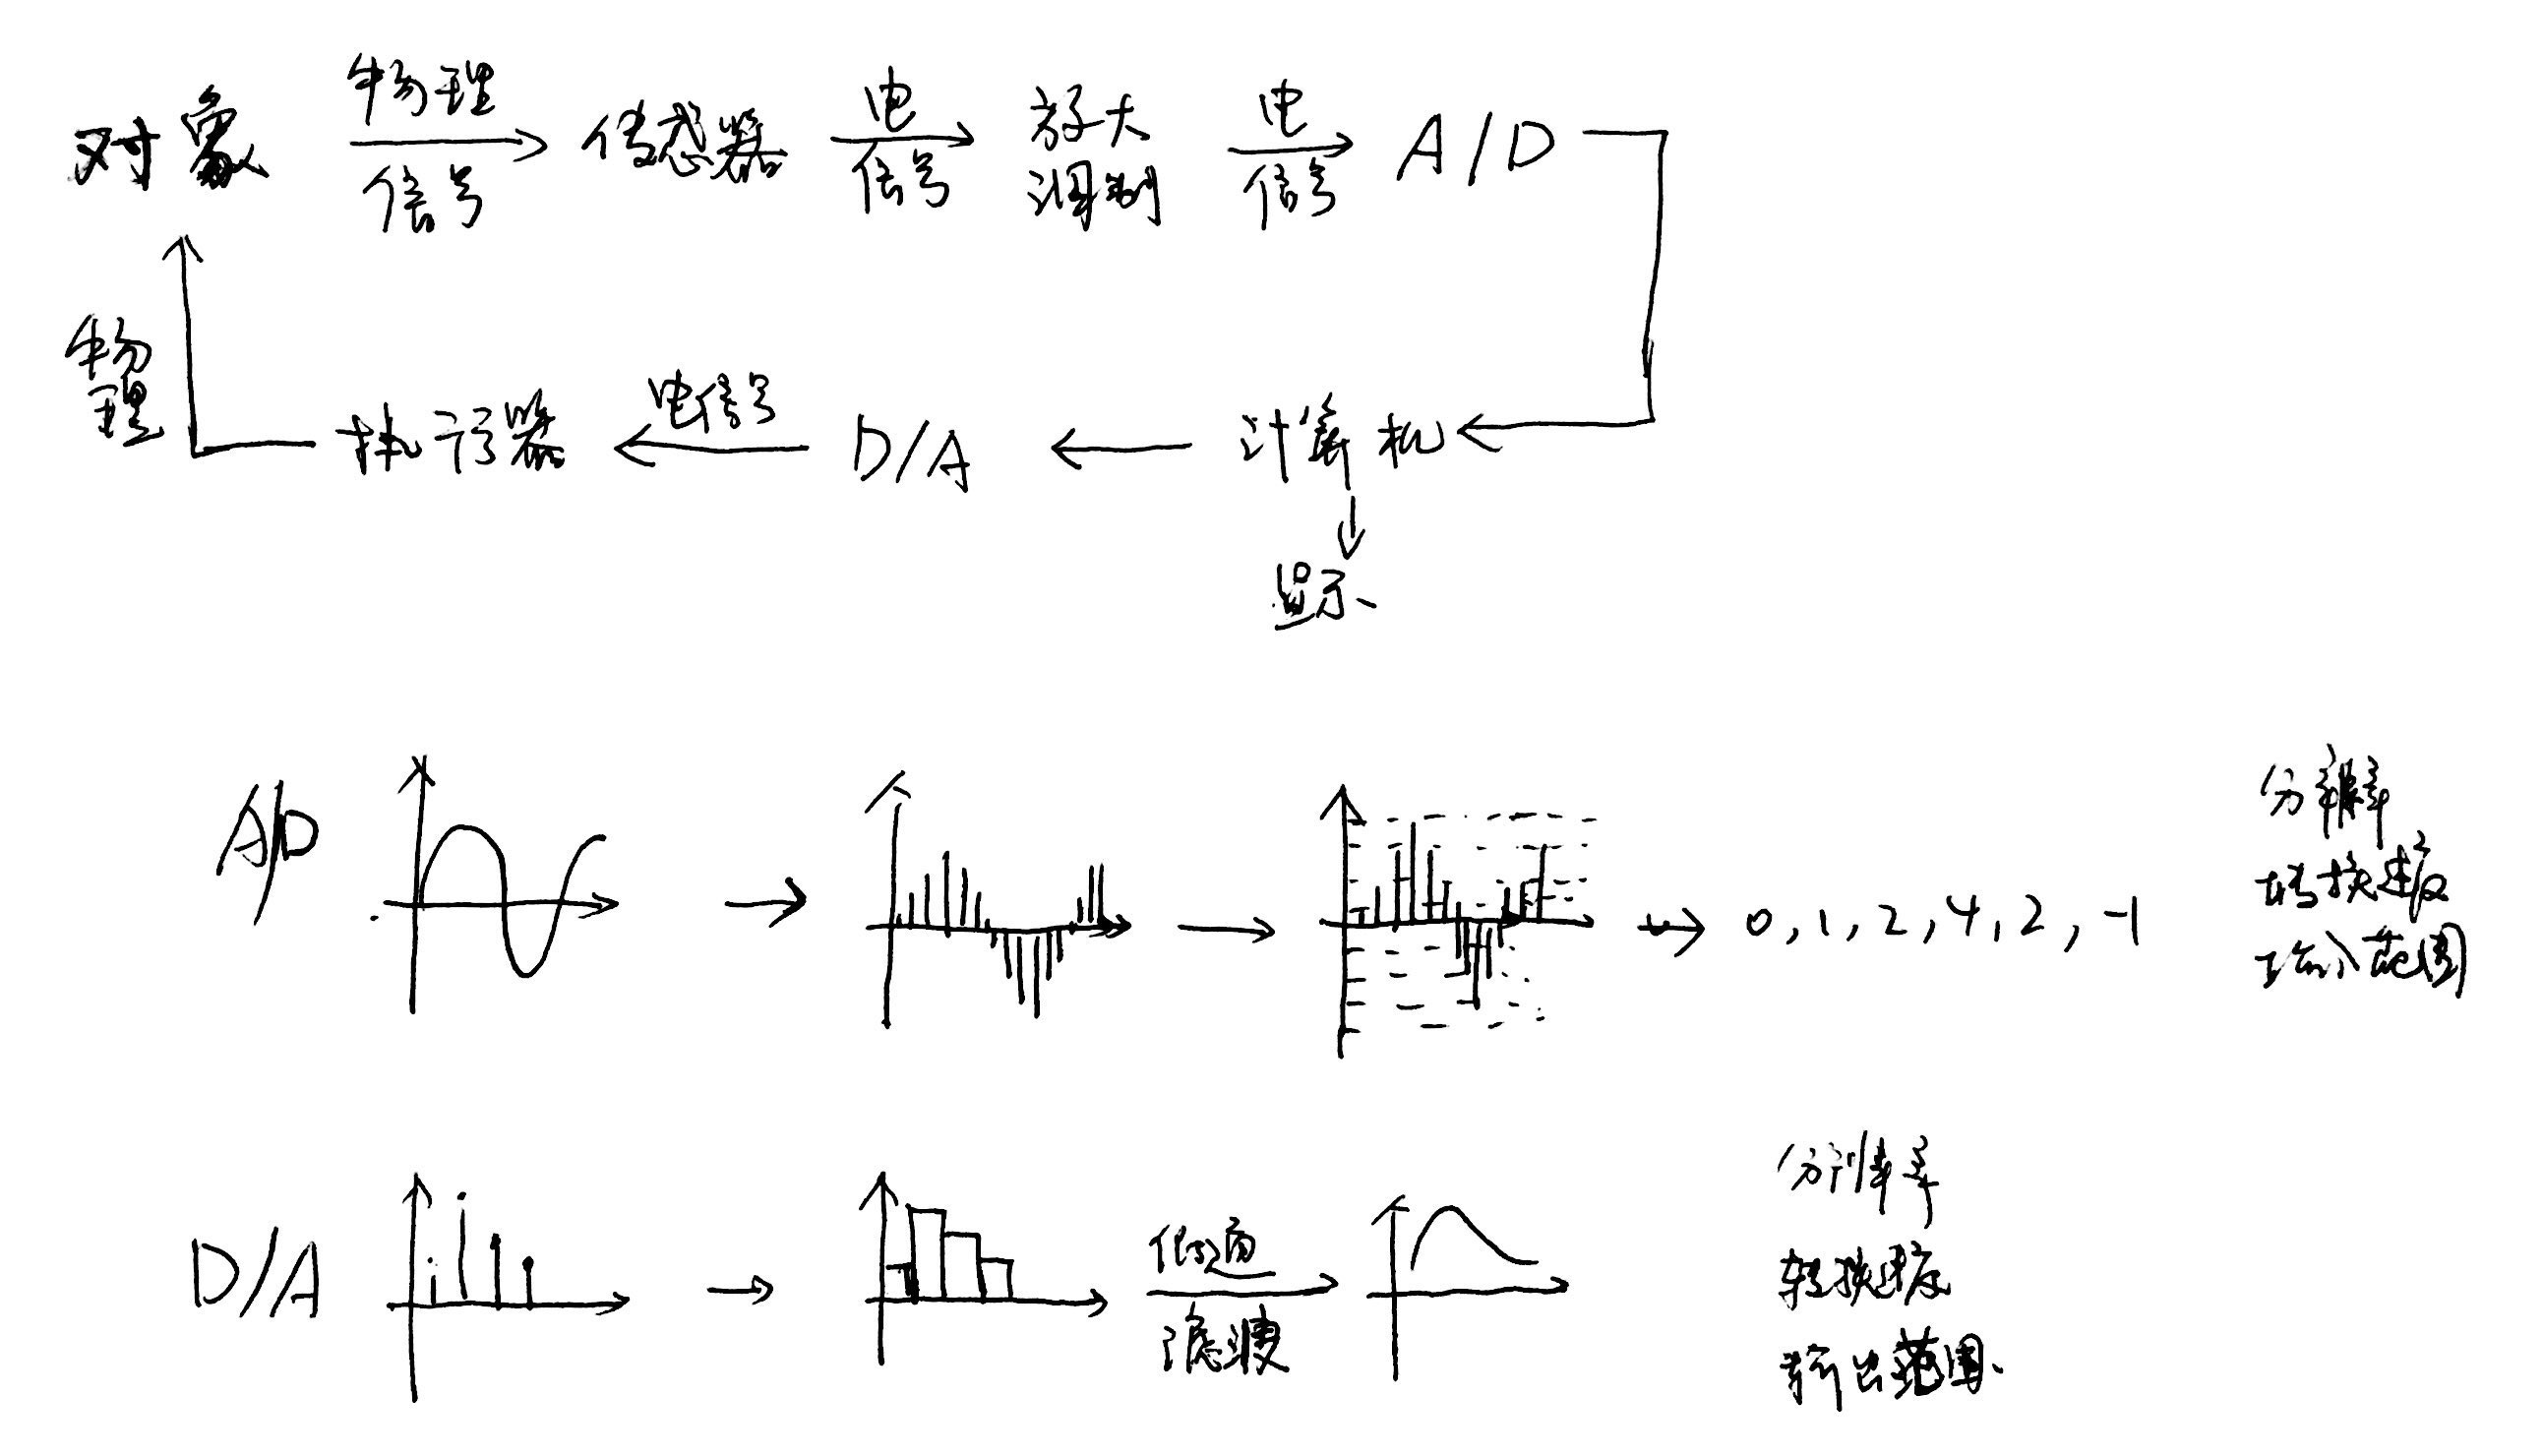 对象
物理
信号
传感器
电
信号
放大
调制
电
信号
A/D
物
理
执行器
电信号
D/A
计算机
显示
A/D
0, 1, 2, 4, 2, -1
分辨率
转换速度
输入范围
D/A
低通
滤波
分辨率
转换速度
输出范围